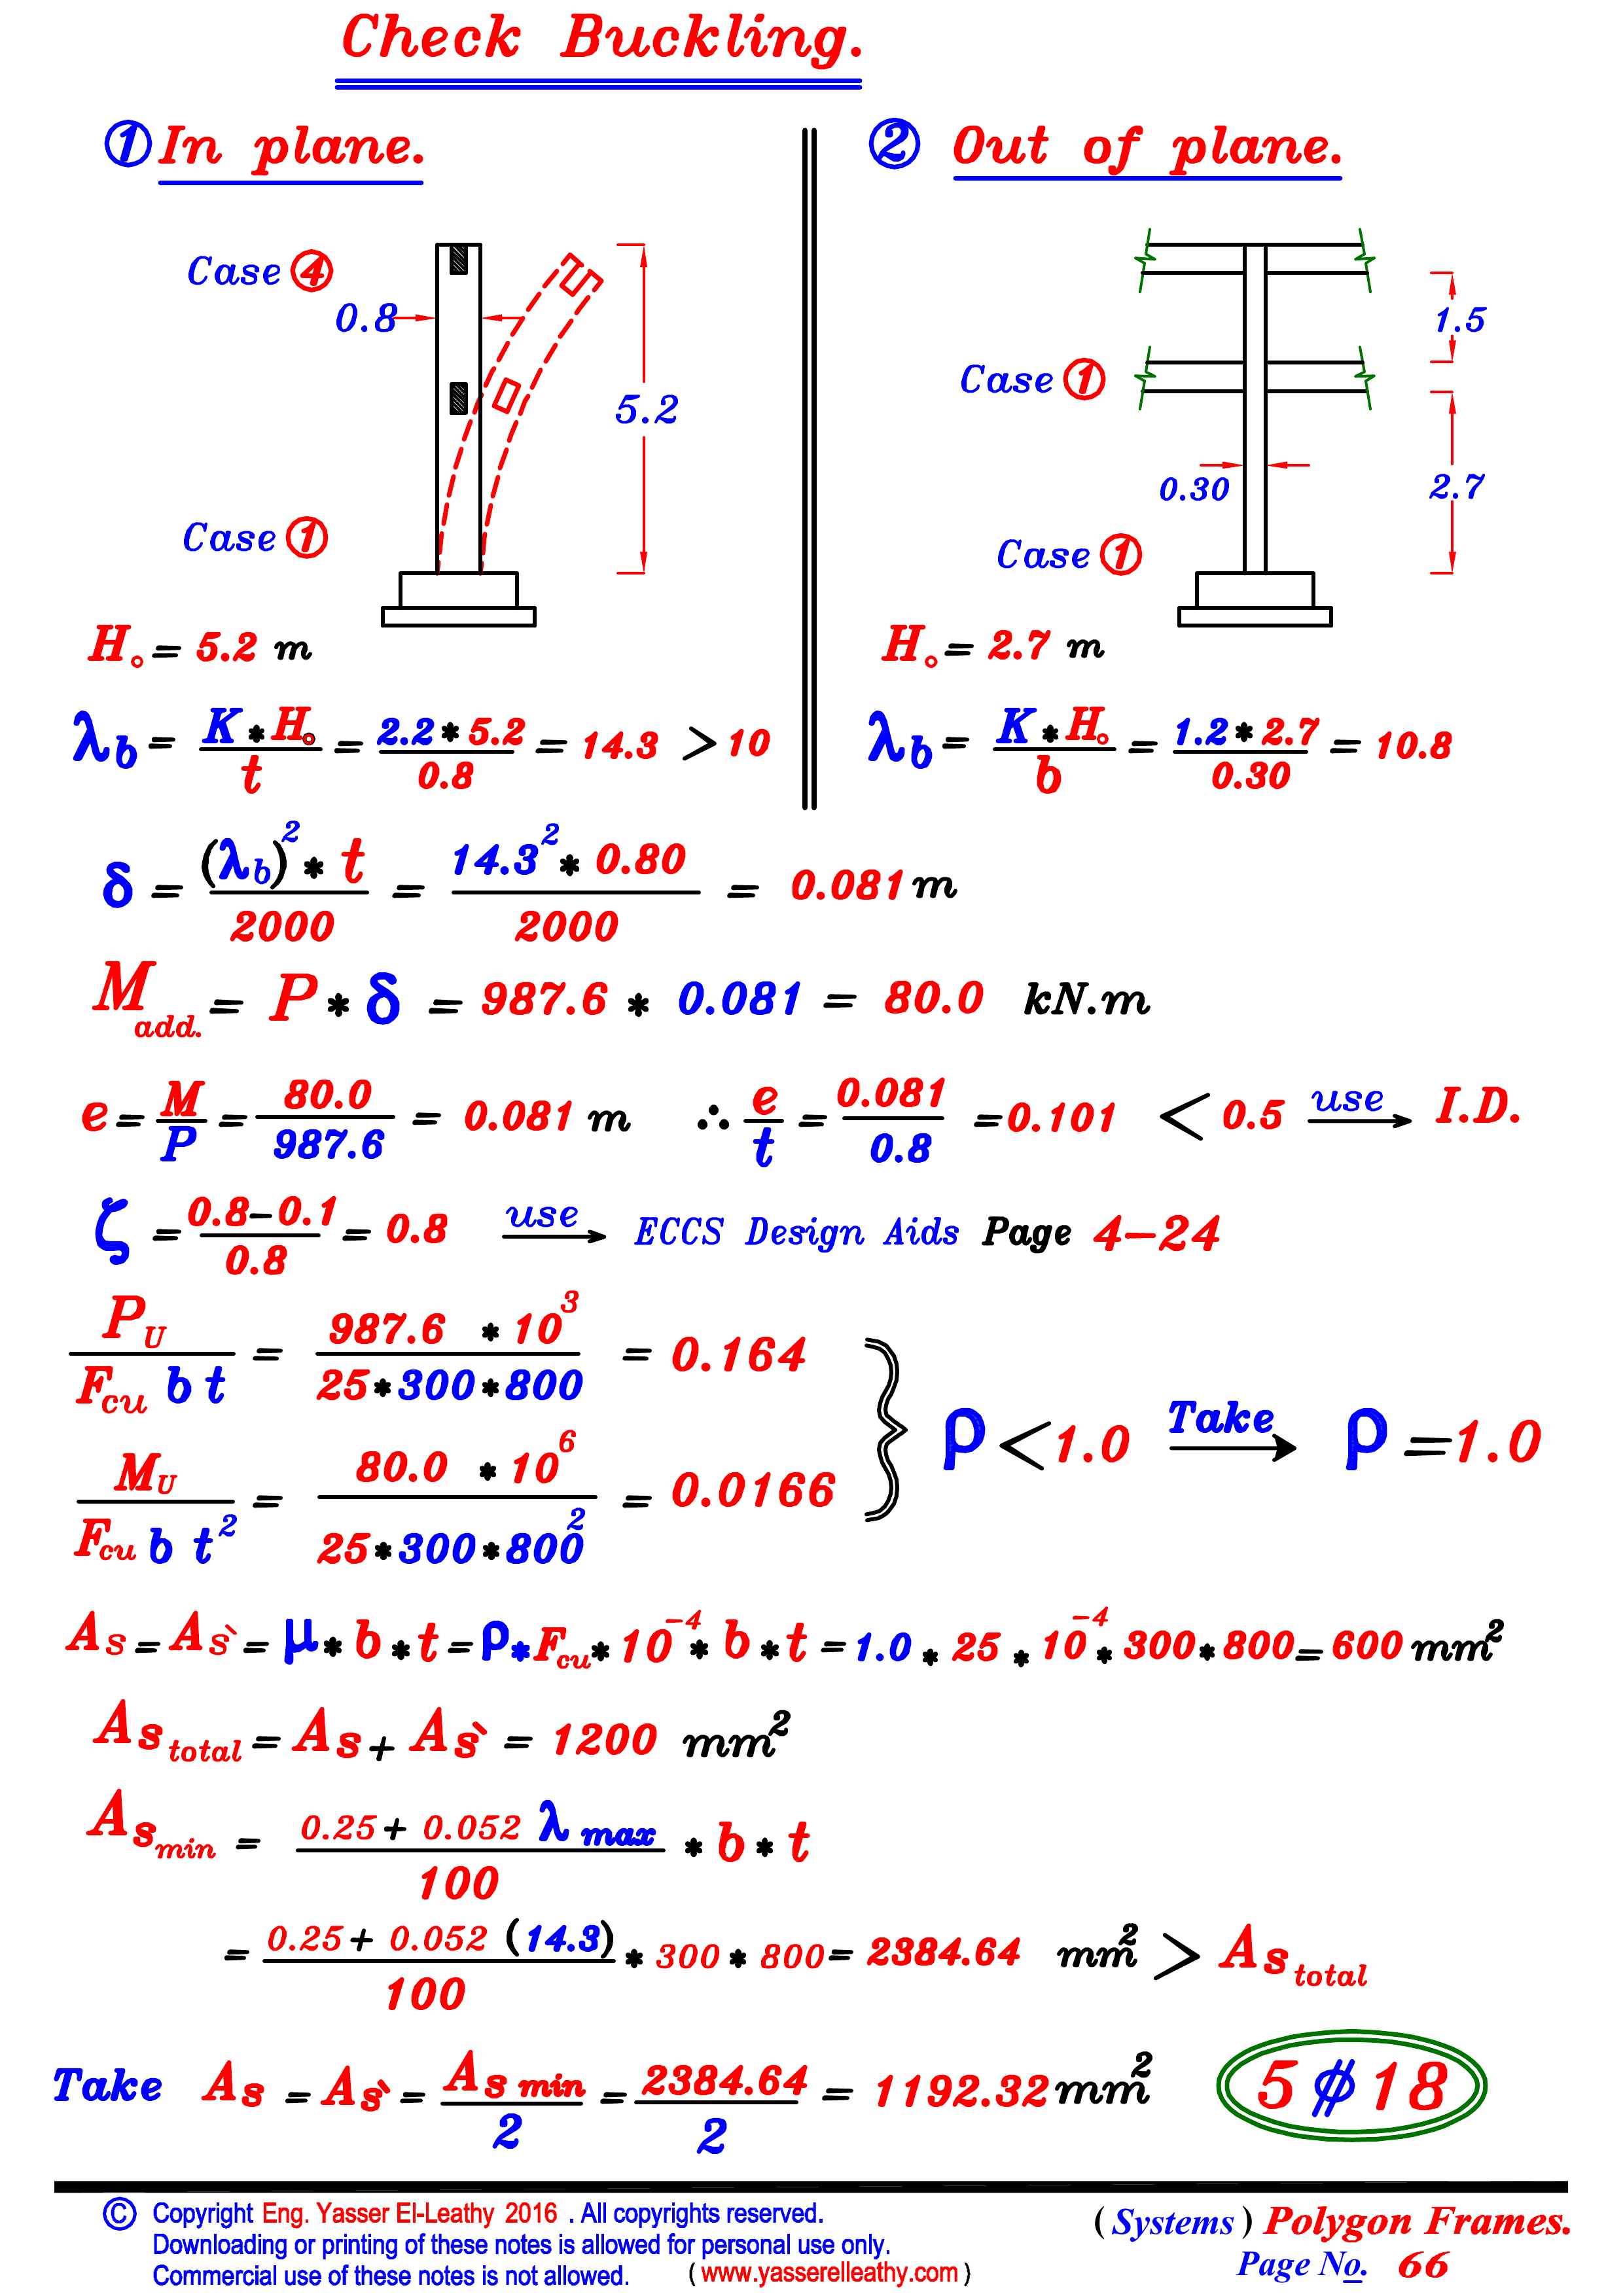 Check Buckling.
① In plane.
Case ④
0.8
5.2
Case ①
H₀ = 5.2 m
λb = K * H₀ / t = 2.2 * 5.2 / 0.8 = 14.3 > 10
② Out of plane.
1.5
Case ①
0.30
2.7
Case ①
H₀ = 2.7 m
λb = K * H₀ / b = 1.2 * 2.7 / 0.30 = 10.8
δ = (λb)² * t / 2000 = 14.3² * 0.80 / 2000 = 0.081 m
M add. = P * δ = 987.6 * 0.081 = 80.0 kN.m
e = M / P = 80.0 / 987.6 = 0.081 m ∴ e / t = 0.081 / 0.8 = 0.101 < 0.5 use → I.D.
ζ = 0.8-0.1 / 0.8 = 0.8 use → ECCS Design Aids Page 4-24
PU / Fcu b t = 987.6 * 10³ / 25*300*800 = 0.164
MU / Fcu b t² = 80.0 * 10⁶ / 25*300*800² = 0.0166
ρ < 1.0 Take → ρ = 1.0
As = As` = μ * b * t = ρ * Fcu * 10⁻⁴ * b * t = 1.0 * 25 * 10⁻⁴ * 300 * 800 = 600 mm²
As total = As + As` = 1200 mm²
As min = 0.25 + 0.052 λ max / 100 * b * t
= 0.25 + 0.052 (14.3) / 100 * 300 * 800 = 2384.64 mm² > As total
Take As = As` = As min / 2 = 2384.64 / 2 = 1192.32 mm² 5 # 18
© Copyright Eng. Yasser El-Leathy 2016 . All copyrights reserved.
Downloading or printing of these notes is allowed for personal use only.
Commercial use of these notes is not allowed. ( www.yasserelleathy.com )
( Systems ) Polygon Frames.
Page No. 66